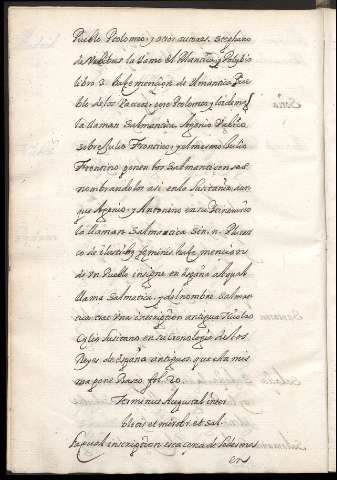 Pueblo Ptolomeo, y otros autores. Stephano
de la llama el Mantica, y Polybio
libro 3 haze mencion de Pue
blo de los Vaceos, que Ptolomeo, y los demas
la llaman Salmantica. Agenio
sobre Julio Frontino, y el mesmo Julio
Frontino ponen los Salmanticenses
nombrandolos asi en la Lusitania, aun
que Agenio, y Antonino en su Itinerario
la llaman Salmantica sin. n. Plutar
co de claris feminis haze mencion
de un Pueblo insigne en España al qual
llama Salmatica, y del nombre Salman
tica trae una inscription antigua
Lusitano en su Cronologia de los
Reyes de España antiguos, que es la mis
ma pone Vaseo fol. 20.
Terminus Augustal inter
blet et mirobr. et Sal
La qual inscription esta cerca de Ledesma
en